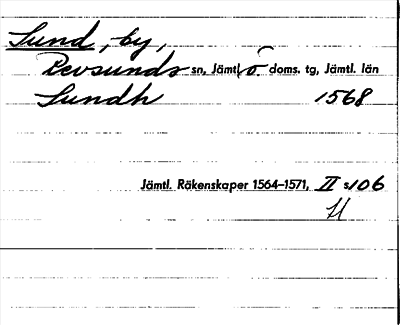 Sund, by,
Revsunds sn, Jämtl. ö. doms. tg, Jämtl. län
Sundh 1568
Jämtl. Räkenskaper 1564–1571, II s. 106